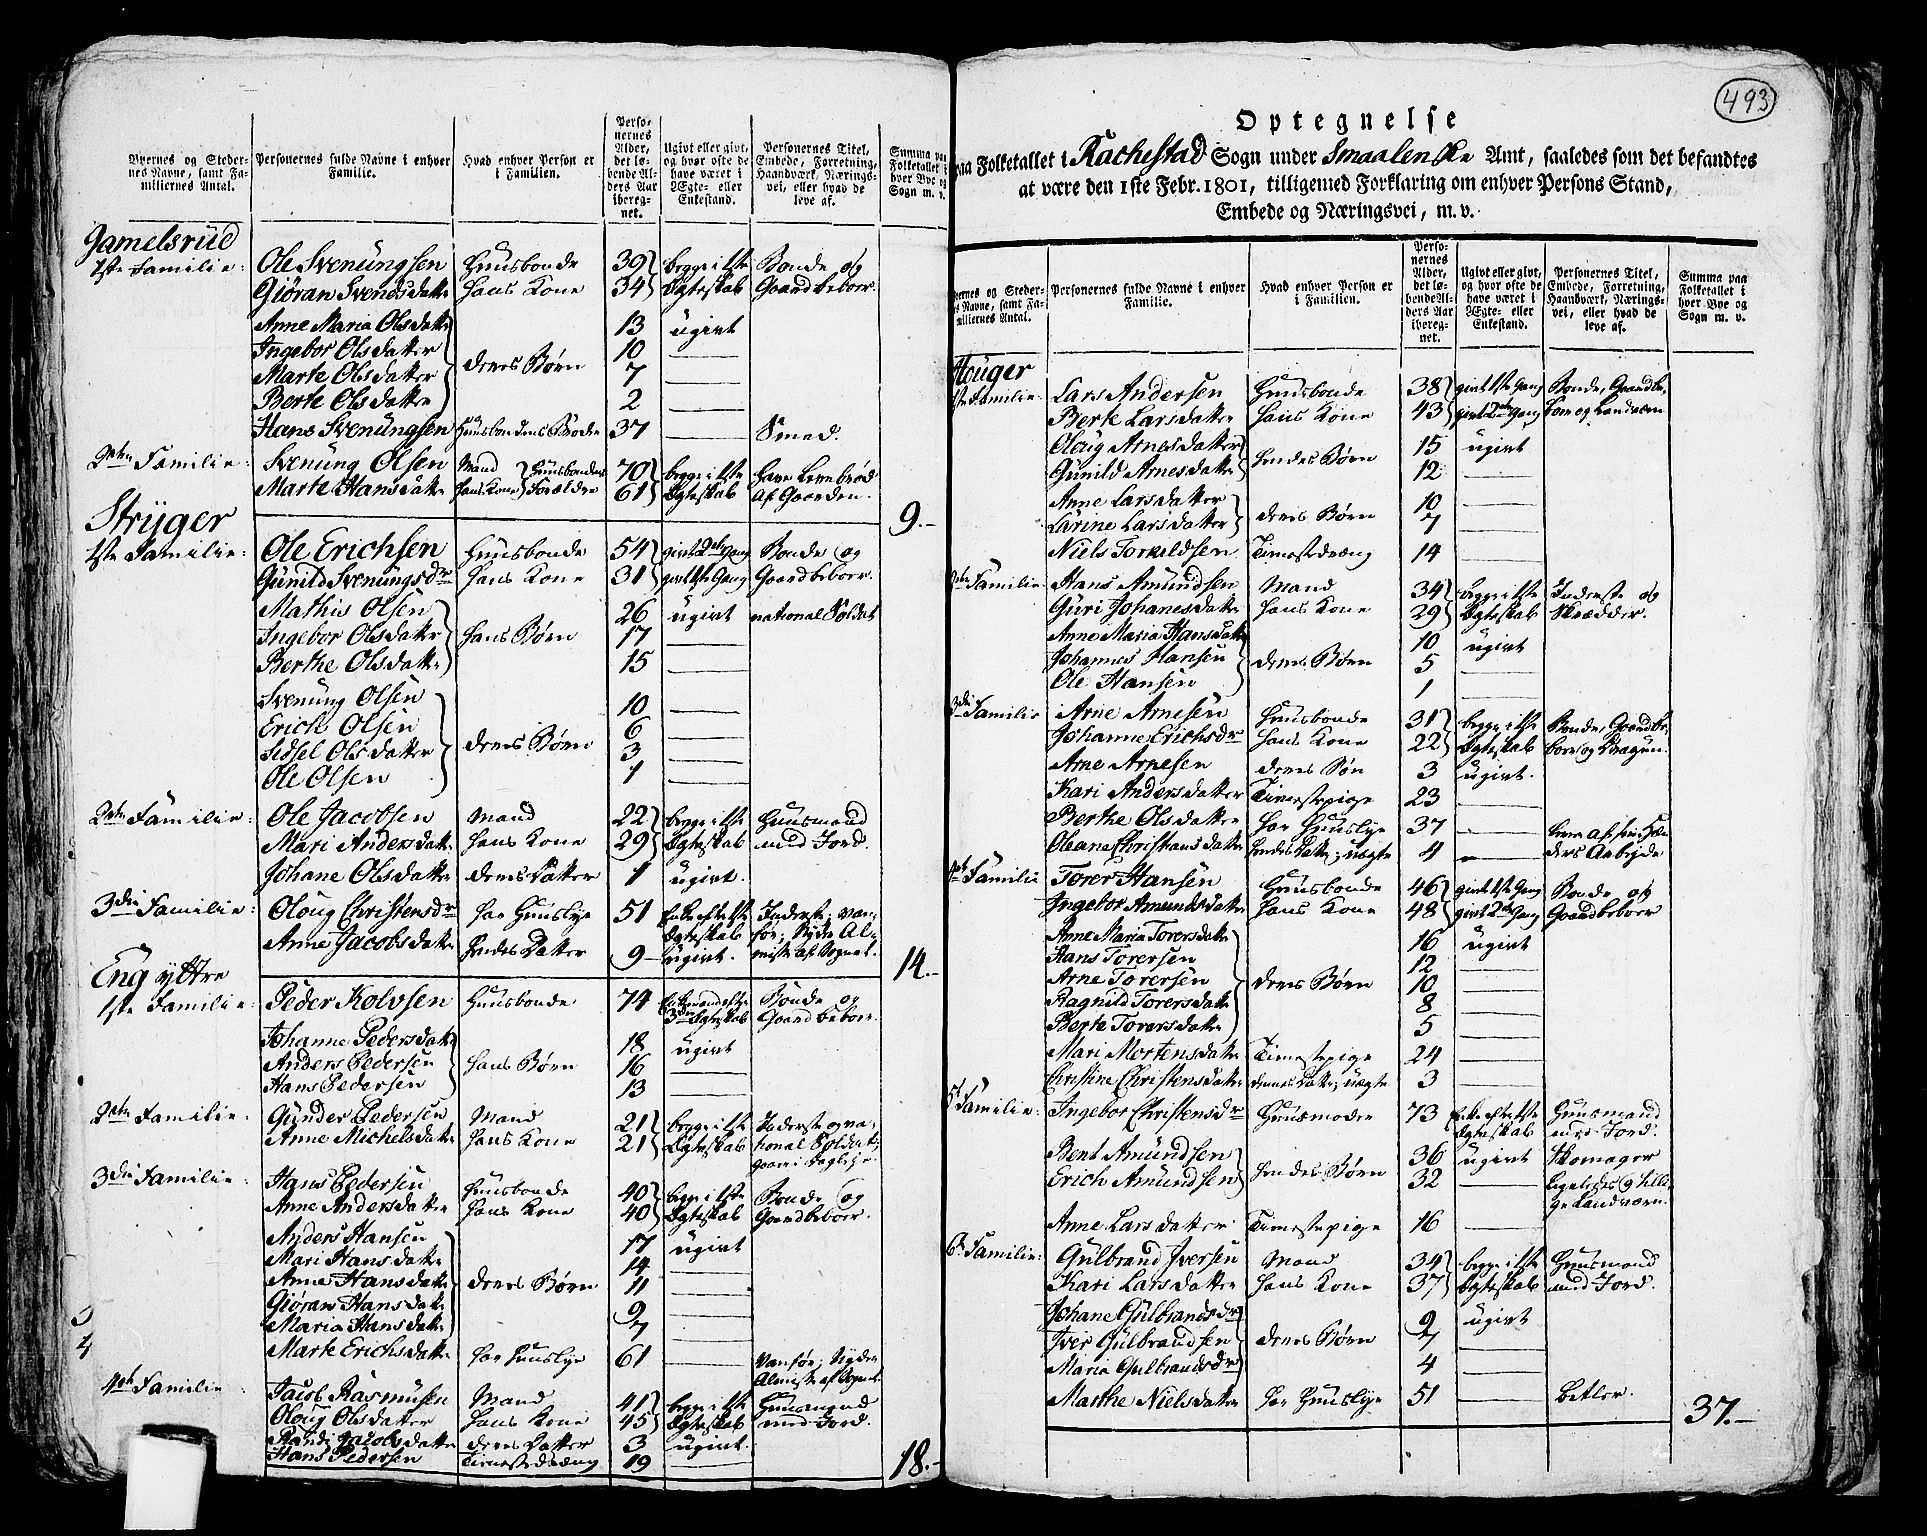 Byernes og Steder-
nes Navne, samt Fa-
miliernes Antal.
Personernes fulde Navne i enhver
Familie.
Hvad enhver Person er
i Familien.
Perso-
nernes
Alder,
det lø-
bende Al-
ders Aar
ibereg-
net.
Ugivt eller givt,
og hvor ofte de
have været i
Ægte- eller
Enkestand.
Personernes Titel,
Embede, Forretning,
Haandværk, Nærings-
vei, eller hvad de
leve af.
Summa paa
Folketallet i
hver Bye og
Sogn m. v.
Gamelsrud
1ste Familie: Ole Svenungsen Huusbonde 39 begge i 1ste Bonde og
Giøran Svendsdatter hans Kone 34 Ægteskab Gaardbeboer.
Anne Maria Olsdatter 13 ugivt
Ingebor Olsdatter 10
Marte Olsdatter deres Børn 7
Berte Olsdatter 2
Hans Svenungsen Huusbondens Broder 37 Smed.
2den Familie: Svenung Olsen Mand Huusbondens 70 begge i 1ste have Levebrød
Marte Hansdatter hans Kone Forældre 61 Ægteskab af Gaarden.
9.-
Stryger
1ste Familie: Ole Erichsen Huusbonde 54 givt 2den Gang Bonde og
Gunild Svenungsdr hans Kone 31 givt 1ste Gang Gaardbeboer.
Mathis Olsen 26 ugivt national Soldat
Ingebor Olsdatter hans Børn 17
Berthe Olsdatter 15
Svenung Olsen 10
Erich Olsen 6
Sidsel Olsdatter deres Børn 3
Ole Olsen 1
2den Familie: Ole Jacobsen Mand 22 begge i 1ste Huusmand
Mari Andersdatter hans Kone 29 Ægteskab med Jord.
Johane Olsdatter deres Datter 1 ugivt.
3die Familie: Oloug Christensdr har Huuslye 51 Enke efter 1ste Inderste, van-
Ægteskab før; Nyder Al-
Anne Jacobsdatter hendes Datter 9 ugivt. misse af Sognet.
14.-
Eng yttre
1ste Familie: Peder Kolvsen Huusbonde 74 Enkemand efter Bonde og
3die Ægteskab Gaardbeboer.
Johanne Pedersdatter 18 ugivt
Anders Pedersen hans Børn 16
Hans Pedersen 13
2den Familie: Gunder Pedersen Mand 21 begge i 1ste Inderste og na-
Anne Michelsdatter hans Kone 21 Ægteskab tional Soldat,
gaar i Dagleje
3die Familie: Hans Pedersen Huusbonde 40 begge i 1ste Bonde og
Anne Andersdatter hans Kone 40 Ægteskab Gaardbeboer.
Anders Hansen 17 ugivt
Mari Hansdatter 14
Anne Hansdatter deres Børn 11
Giøran Hansdatter 9
Maria Hansdatter 7
Marte Erichsdatter har Huuslye 61 Vanfør; Nyder
Almisse af Sognet
4de Familie Jacob Rasmusen Mand 41 begge i 1ste Huusmand
Oloug Olsdatter hans Kone 45 Ægteskab med Jord.
Randi Jacobsdatter deres Datter 3 ugivt.
Hans Pedersen Tienestedreng 19
18.-
493
Optegnelse
paa Folketallet i Rackestad Sogn under Smaalenske Amt, saaledes som det befandtes
at være den 1ste Febr. 1801, tilligemed Forklaring om enhver Persons Stand,
Embede og Næringsvei, m. v.
ernes og Steder-
s Navne, samt Fa-
miliernes Antal.
Personernes fulde Navne i enhver
Familie.
Hvad enhver Person er
i Familien.
Perso-
nernes
Alder,
det lø-
bende Al-
ders Aar
ibereg-
net.
Ugivt eller givt,
og hvor ofte de
have været i
Ægte- eller
Enkestand.
Personernes Titel,
Embede, Forretning,
Haandværk, Nærings-
vei, eller hvad de
leve af.
Summa paa
Folketallet i
hver Bye og
Sogn m. v.
Houger
1ste Familie: Lars Andersen Huusbonde 38 givt 1ste Gang Bonde, Gaardbe-
Berte Larsdatter hans Kone 43 givt 2den Gang boer og Landværn
Oloug Arnesdatter 15 ugivt
Gunild Arnesdatter hendes Børn 12
Anne Larsdatter 10
Larine Larsdatter deres Børn 7
Niels Torkildsen Tienestedreng 14
2den Familie: Hans Amundsen Mand 34 begge i 1ste Inderste og
Guri Johanesdatter hans Kone 29 Ægteskab Skrædder.
Anne Maria Hansdatter 10 ugivt
Johannes Hansen deres Børn 5
Ole Hansen 1
3die Familie Arne Arnesen Huusbonde 31 begge i 1ste Bonde, Gaardbe-
Johanne Erichsdr hans Kone 22 Ægteskab boer og Dragun.
Arne Arnesen deres Søn 3 ugivt.
Kari Andersdatter Tienestepige 23
Berthe Olsdatter har Huuslye 37 lever af sine Hæn-
Oleane Christiansdatter hendes Datter, uægte 4 ders Arbeyde
4de Familie Torer Hansen Huusbonde 46 givt 1ste Gang Bonde og
Ingebor Amundsdatter hans Kone 48 givt 2den Gang Gaardbeboer
Anne Maria Torersdatter 16 ugivt
Hans Torersen 12
Arne Torersen deres Børn 10
Ragnild Torersdatter 8
Berte Torersdatter 5
Mari Mortensdatter Tienestepige 24
Christine Christensdatter dennes Datter, uægte 3
5te Familie: Ingebor Christensdr Huusmoder 73 Enke efter 1ste Huusmand
Ægteskab med Jord.
Bent Amundsen 36 ugivt Skomager
Erich Amundsen hendes Børn 32 ligeledes og tilli-
ge Landværn.
Anne Larsdatter Tienestepige 16
6te Familie: Gulbrand Iversen Mand 34 begge i 1ste Huusmand
Kari Larsdatter hans Kone 37 Ægteskab med Jord.
Johane Gulbrandsdr 9 ugivt
Iver Gulbrandsen deres Børn 7
Maria Gulbrandsdr 4
Marthe Nielsdatter har Huuslye 51 betler.
37.-